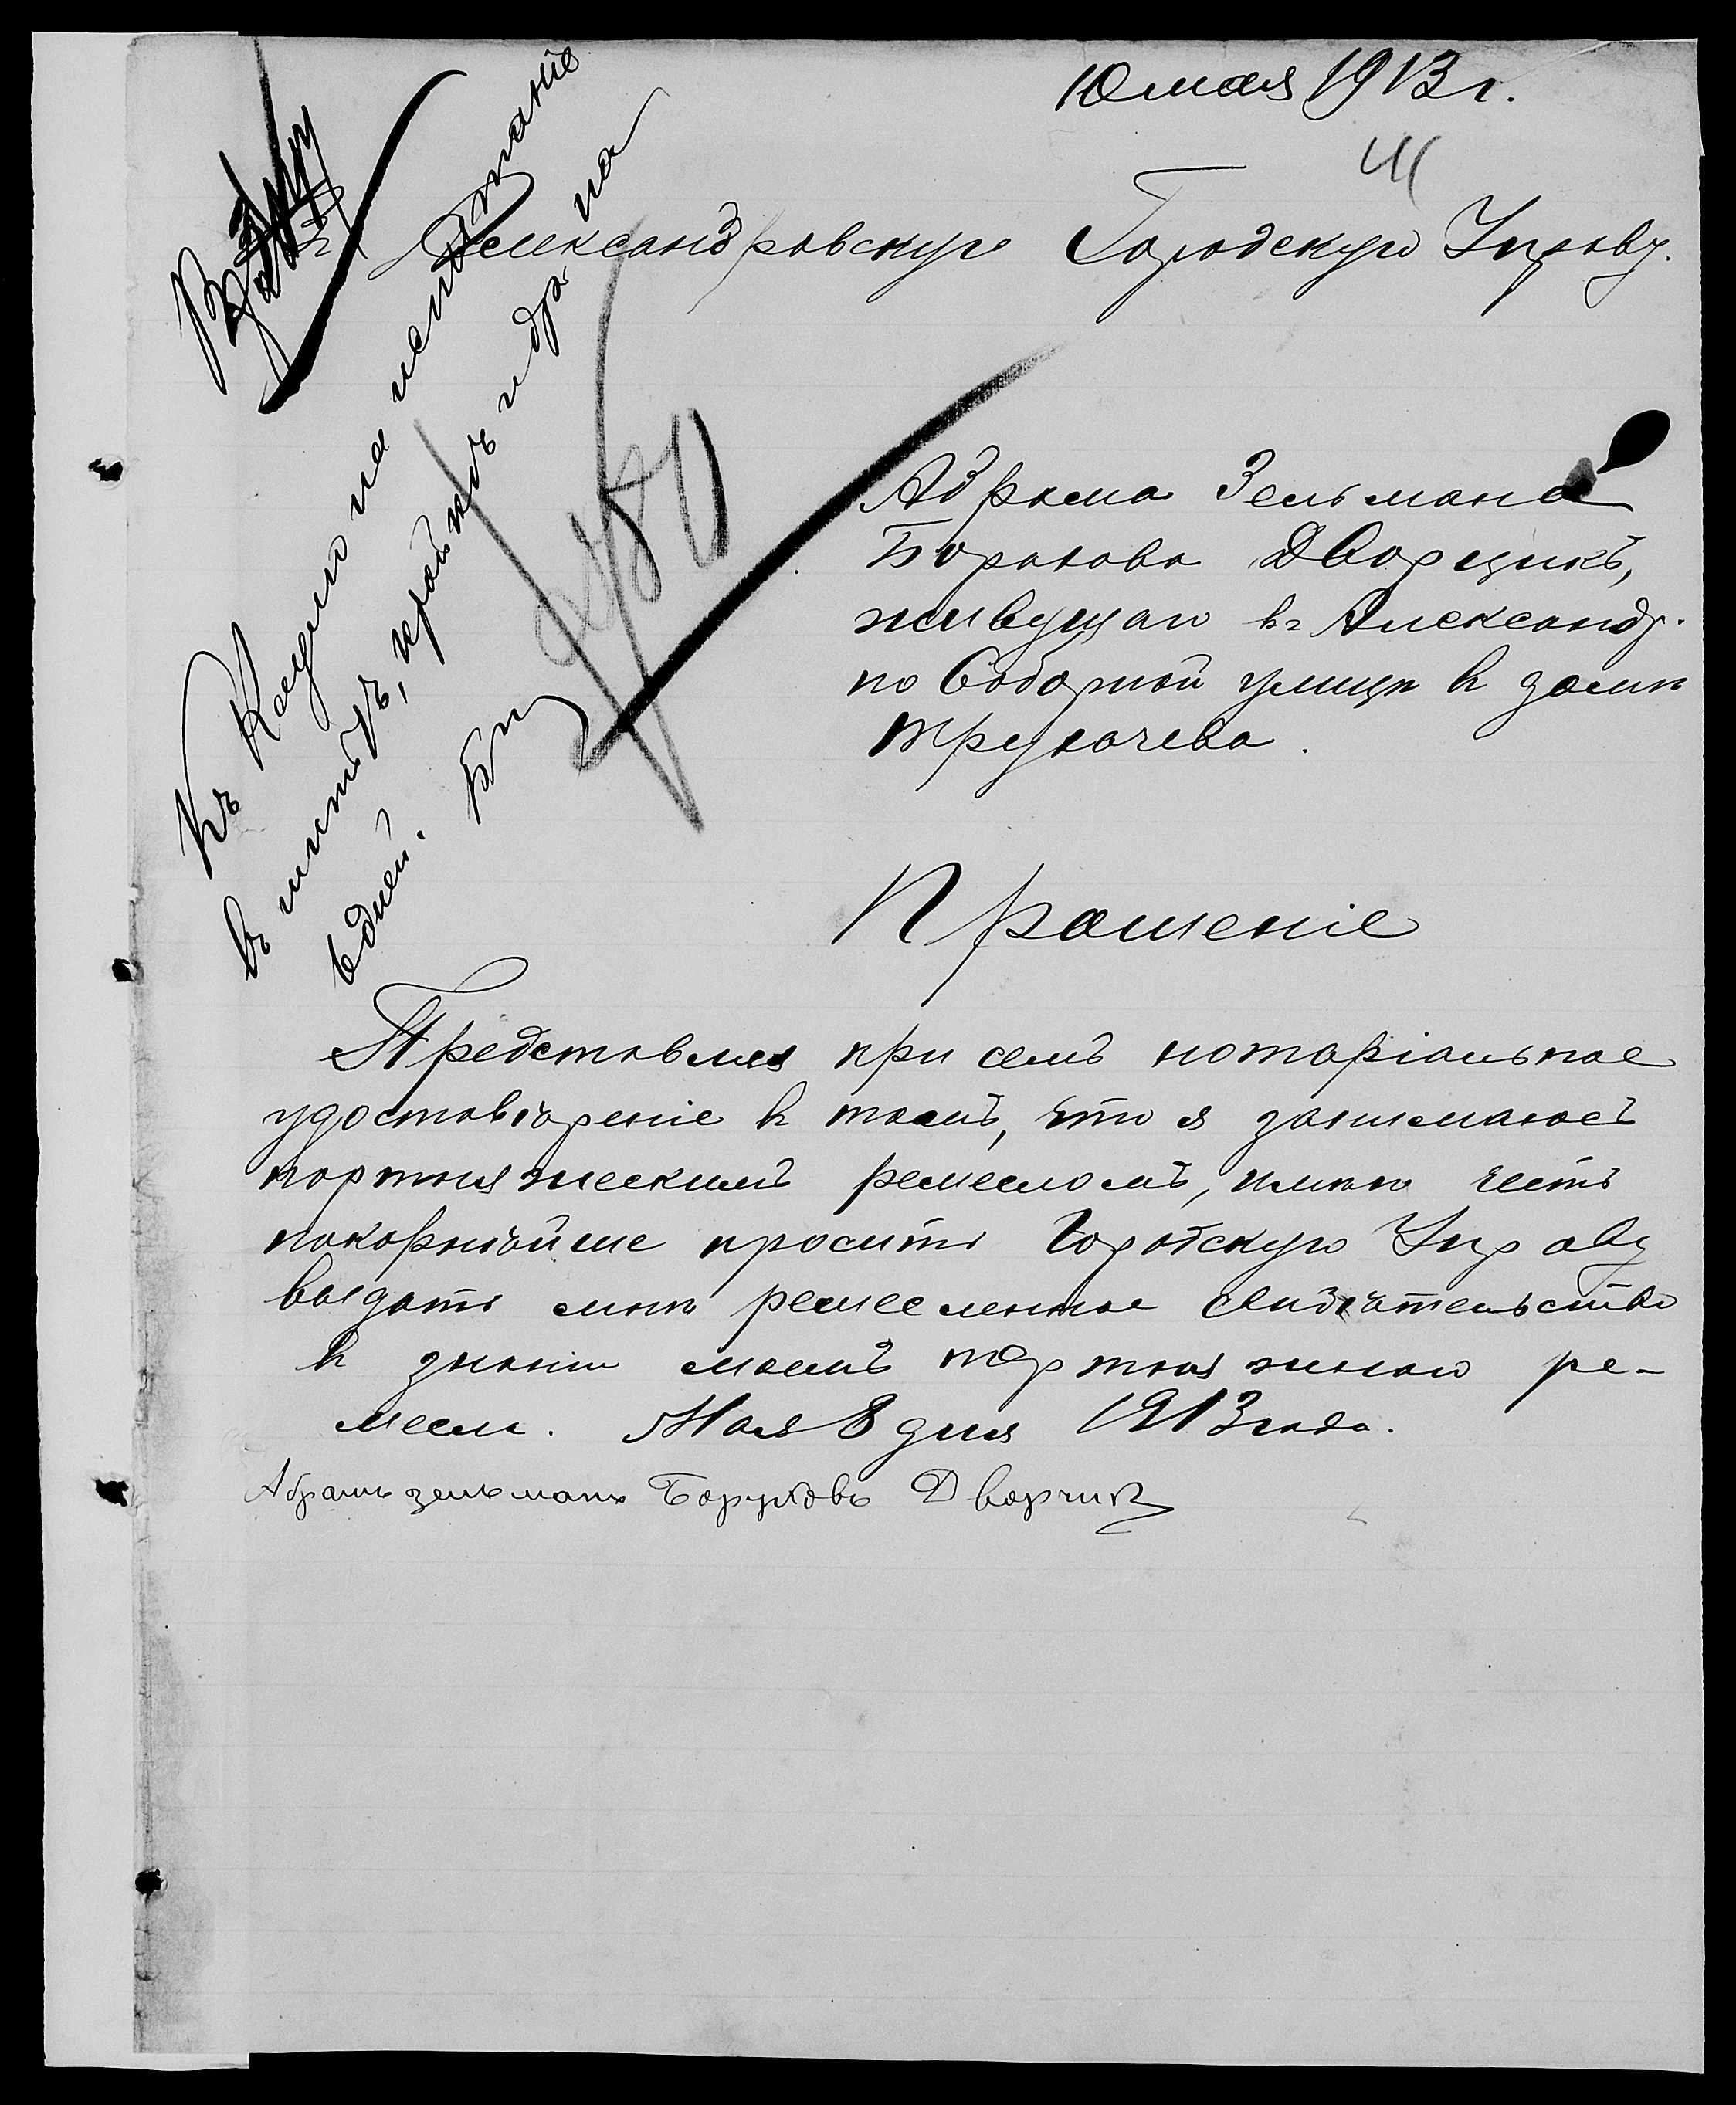 10 мая 1913 г.
Въ Александровскую Городскую Управу.
Къ Кацману на испытаніе
въ шитьѣ, кройкѣ и др. на
6 дней.
Абрама Зельмана
Борохова Дворцикъ,
живущаго в г Александр.
по Соборной улицѣ в домѣ
Прошеніе
Представляя при семъ нотаріальное
удостовѣреніе в томъ, что я занимаюсъ
портняжескимъ ремесломъ, имѣю честь
покорнѣйше просить Городскую Управу
выдать мнѣ ремесленное свидѣтельство
в знаніи моемъ портняжнаго ре-
месла. Мая 8 дня 1913 года.
Абрамъ зельманъ Боруховъ Дворчик